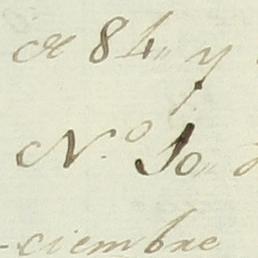 a 84,, y
N.º 10,, d
-ciembre